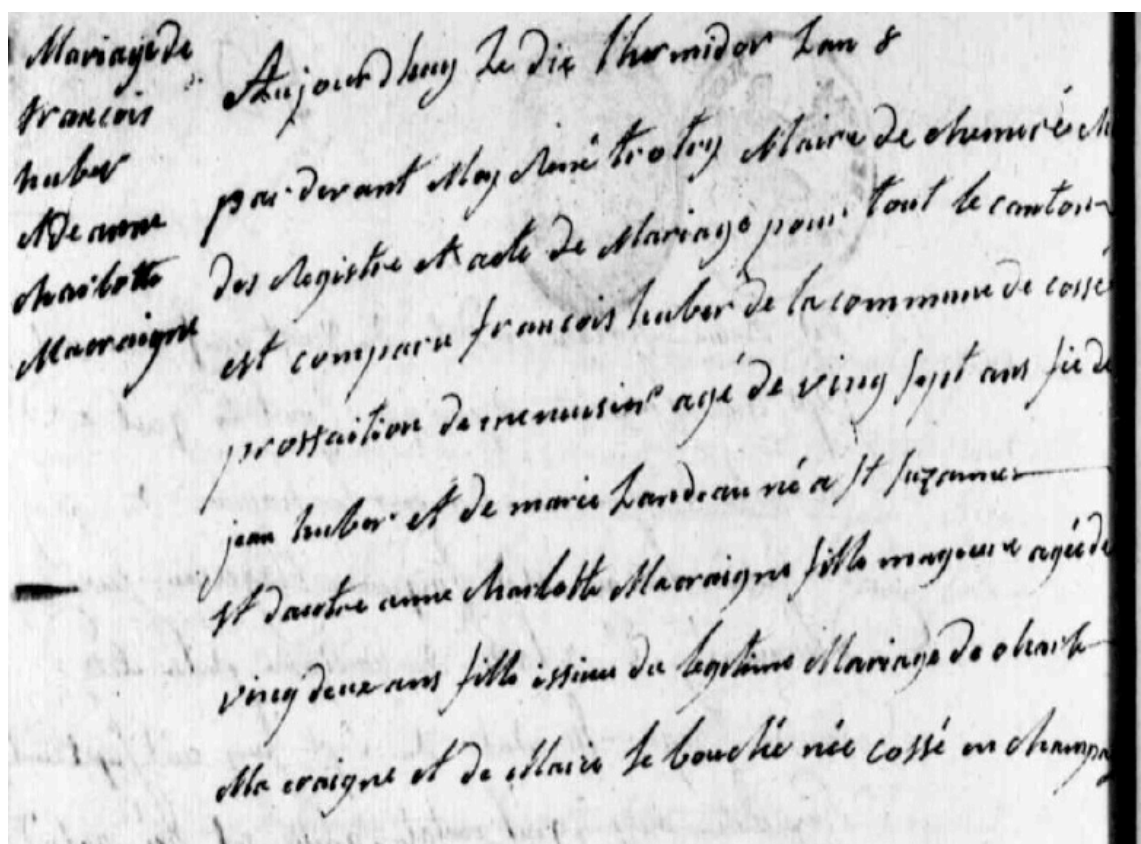 Mariage de
francois
huber
et de anne
charlotte
Macraigne
Aujourdhuy le dix thermidor lan 8
par devant Moy René trotry Maire de chemiré
des Registre et acte de Mariage pour tout le canton
est comparu francois huber de la commune de cossé
proffaition de menusier agé de ving sept ans fie de
jean huber et de marie Landeau né a St Suzanne
et dautre anne charlotte Macraigne fille mageure agée de
ving deux ans fille issieu du legitime Mariage de charle
Macraigne et de Marie le bouchée née cossé en champag